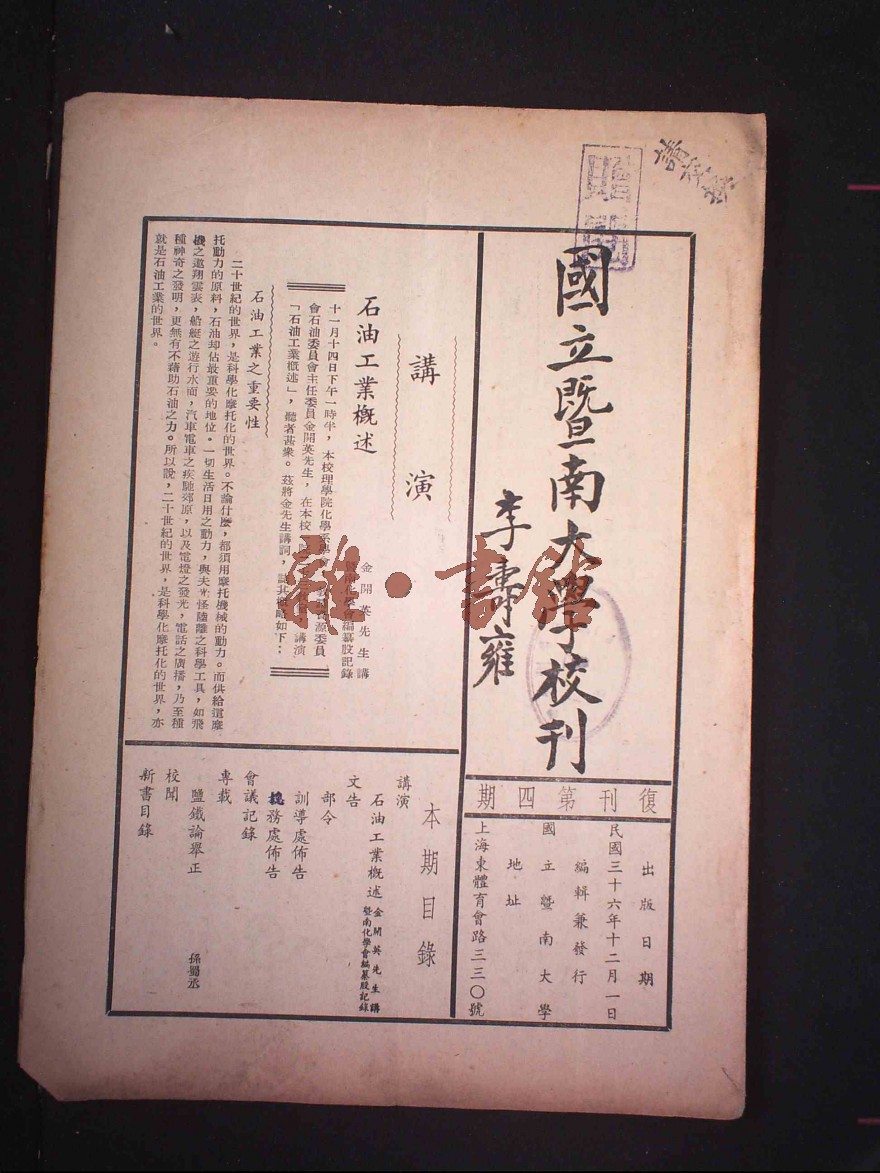 國立暨南大學校刊
李壽雍
請交換
復刊第四期
出版日期
民國三十六年十二月一日
編輯兼發行
國立暨南大學
地址
上海東體育會路三三〇號
講演
石油工業概述
金開英先生講
暨南化學會編纂股記錄
十一月十四日下午一時半,本校理學院化學系學會
會石油委員會主任委員金開英先生,在本校
講演
「石油工業概述」,聽者甚衆。茲將金先生講詞,
如下:
石油工業之重要性
二十世紀的世界,是科學化摩托化的世界。不論什麼,都須用摩托機械的動力。而供給這摩
托動力的原料,石油却佔最重要的地位。一切生活日用之動力,與夫光怪陸離之科學工具,如飛
機之遨翔雲表,船艇之遊行水面,汽車電車之疾馳郊原,以及電燈之發光,電話之廣播,乃至種
種神奇之發明,更無有不藉助石油之力。所以說,二十世紀的世界,是科學化摩托化的世界,亦
就是石油工業的世界。
本期目錄
講演
石油工業概述 金開英先生講 暨南化學會編纂股記錄
文告
部令
訓導處佈告
務處佈告
會議記錄
專載
鹽鐵論舉正 孫蜀丞
校聞
新書目錄
雜·書館